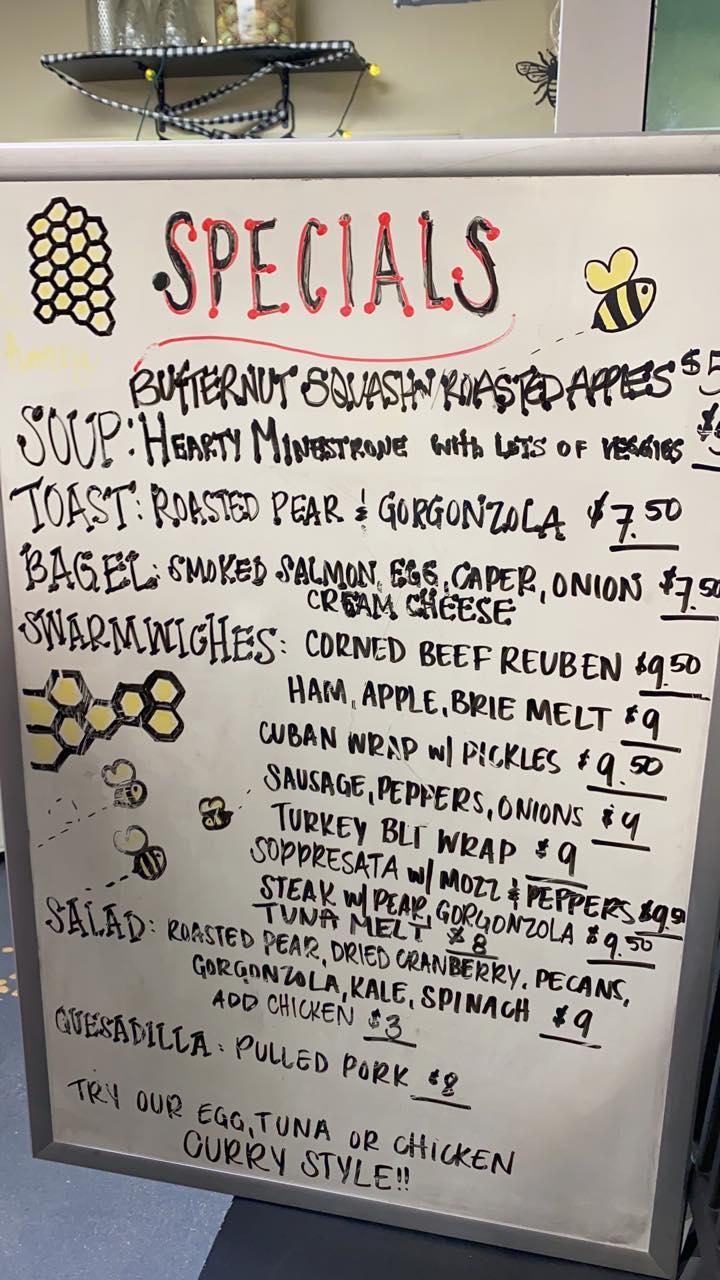 SPECIALS
BUTTERNUT SQUASH W/ ROASTED APPLES $5
SOUP: HEARTY MINESTRONE with LOTS OF VEGGIES
TOAST: ROASTED PEAR & GORGONZOLA $7.50
BAGEL: SMOKED SALMON, EGG, CAPER, ONION $7.50
CREAM CHEESE
SWARMWICHES: CORNED BEEF REUBEN $9.50
HAM, APPLE, BRIE MELT $9
CUBAN WRAP W/ PICKLES $9.50
SAUSAGE, PEPPERS, ONIONS $9
TURKEY BLT WRAP $9
SOPPRESATA W/ MOZZ & PEPPERS $9.50
STEAK W/ PEAR, GORGONZOLA $9.50
TUNA MELT $8
SALAD: ROASTED PEAR, DRIED CRANBERRY, PECANS,
GORGONZOLA, KALE, SPINACH $9
ADD CHICKEN $3
QUESADILLA: PULLED PORK $8
TRY OUR EGG, TUNA OR CHICKEN
CURRY STYLE!!